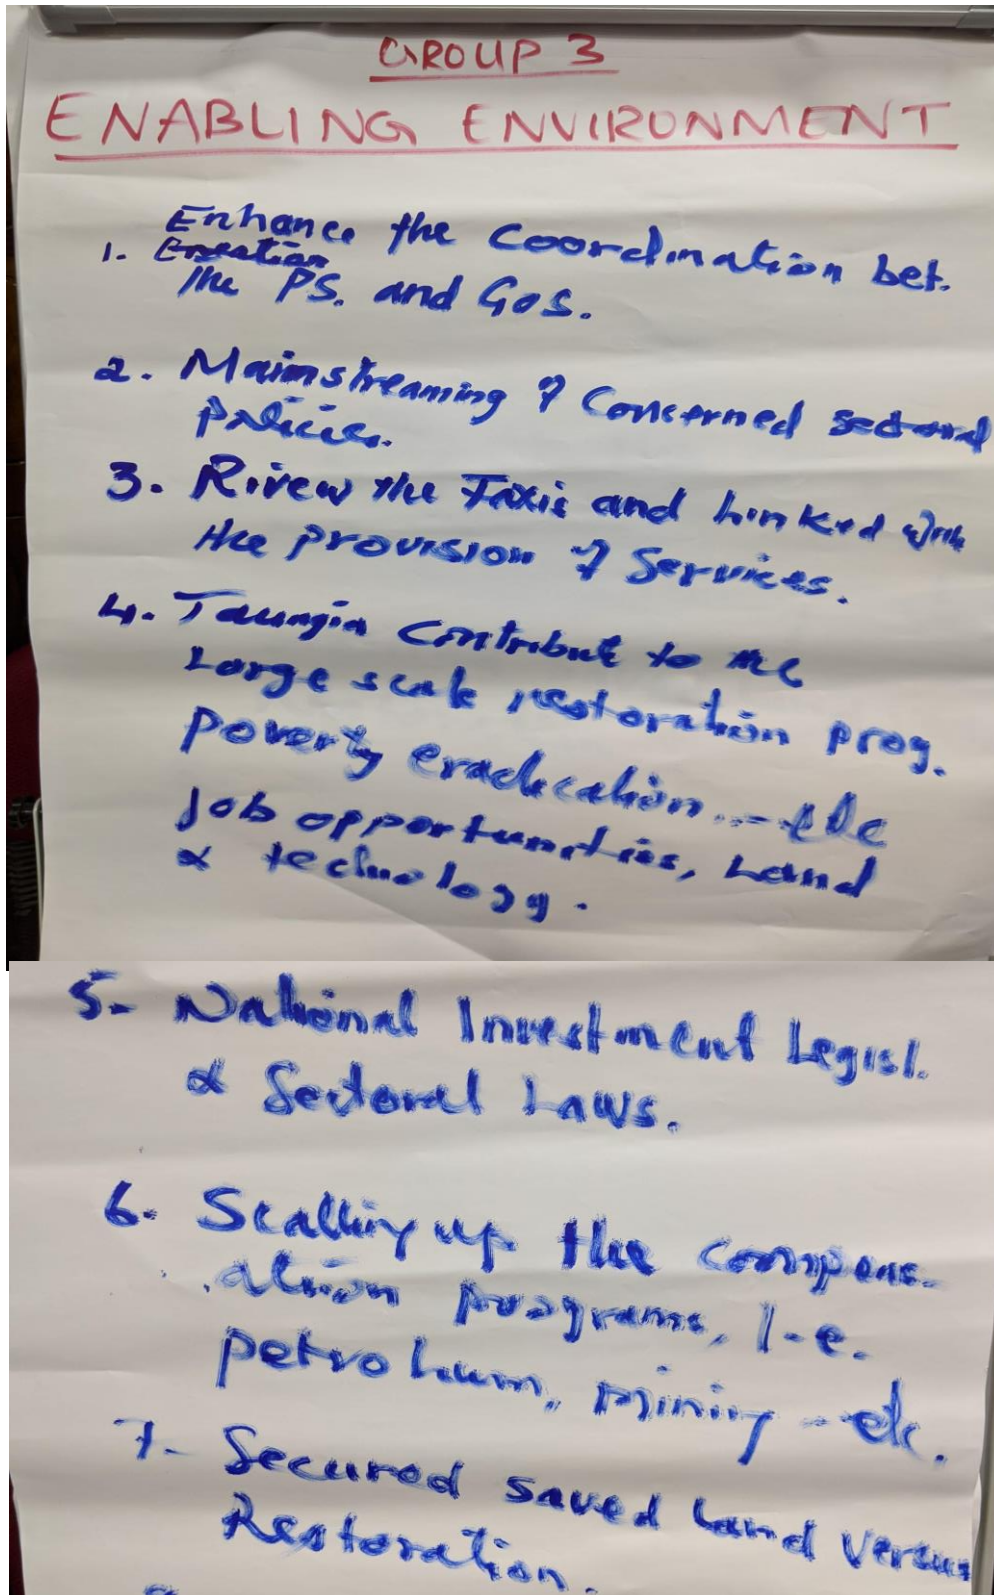 GROUP 3
ENABLING ENVIRONMENT
Enhance the Coordination bet.
1. Creation
the PS. and GOS.
2. Mainstreaming of Concerned sectoral
policies.
3. Rivew the Taxis and Linked with
the provision of Services.
4. Taungia contribut to the
Large scale restoration prog.
poverty eradication...- etc
Job opportunities, Land
& technology.
5- National Investment Legisl.
& Sectoral Laws.
6. Scalling up the compens-
ation programs, I-e.
petroleum, mining - etc.
7- Secured saved Land versus
Restoration.